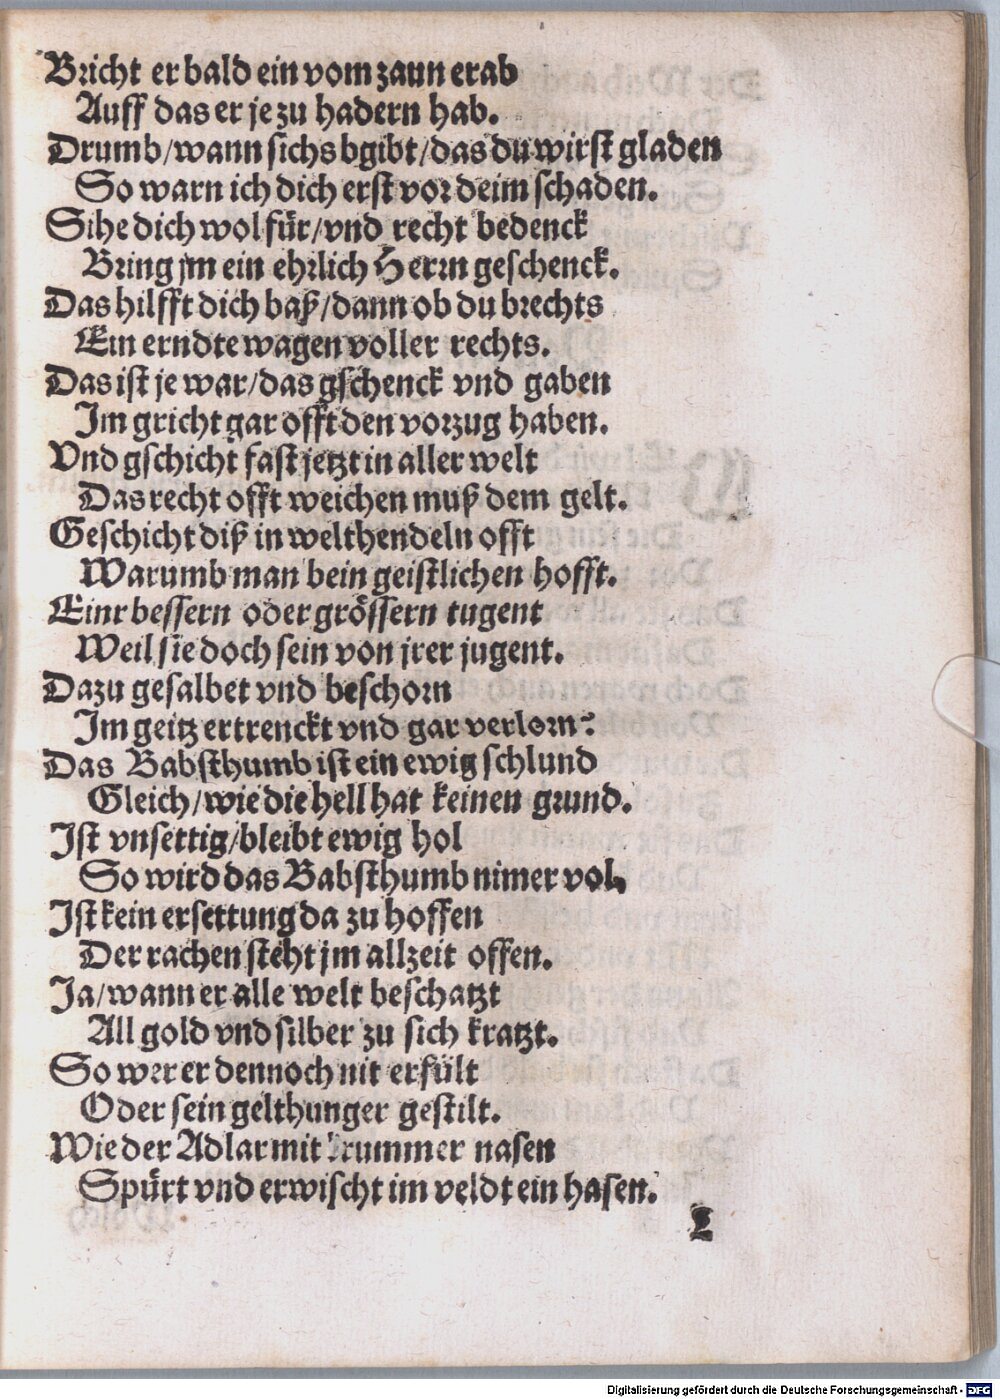 Bricht er bald ein vom zaun erab
Auff das er je zu hadern hab.
Drumb/wann sichs bgibt/das du wirst gladen
So warn ich dich erst vor deim schaden.
Sihe dich wol für/vnd recht bedenck
Bring jm ein ehrlich Herrn geschenck.
Das hilfft dich baß/dann ob du brechts
Ein erndte wagen voller rechts.
Das ist je war/das gschenck vnd gaben
Im gricht gar offt den vorzug haben.
Vnd gschicht fast jetzt in aller welt
Das recht offt weichen muß dem gelt.
Geschicht diß in welthendeln offt
Warumb man bein geistlichen hofft.
Einr bessern oder grössern tugent
Weil sie doch sein von jrer jugent.
Dazu gesalbet vnd beschorn
Im geitz ertrenckt vnd gar verlorn?
Das Babsthumb ist ein ewig schlund
Gleich/wie die hell hat keinen grund.
Ist vnsettig/bleibt ewig hol
So wird das Babsthumb nimer vol.
Ist kein ersettung da zu hoffen
Der rachen steht jm allzeit offen.
Ja/wann er alle welt beschatzt
All gold vnd silber zu sich kratzt.
So wer er dennoch nit erfült
Oder sein gelthunger gestilt.
Wie der Adlar mit krummer nasen
Spürt vnd erwischt im veldt ein hasen.
L
Digitalisierung gefördert durch die Deutsche Forschungsgemeinschaft - DFG